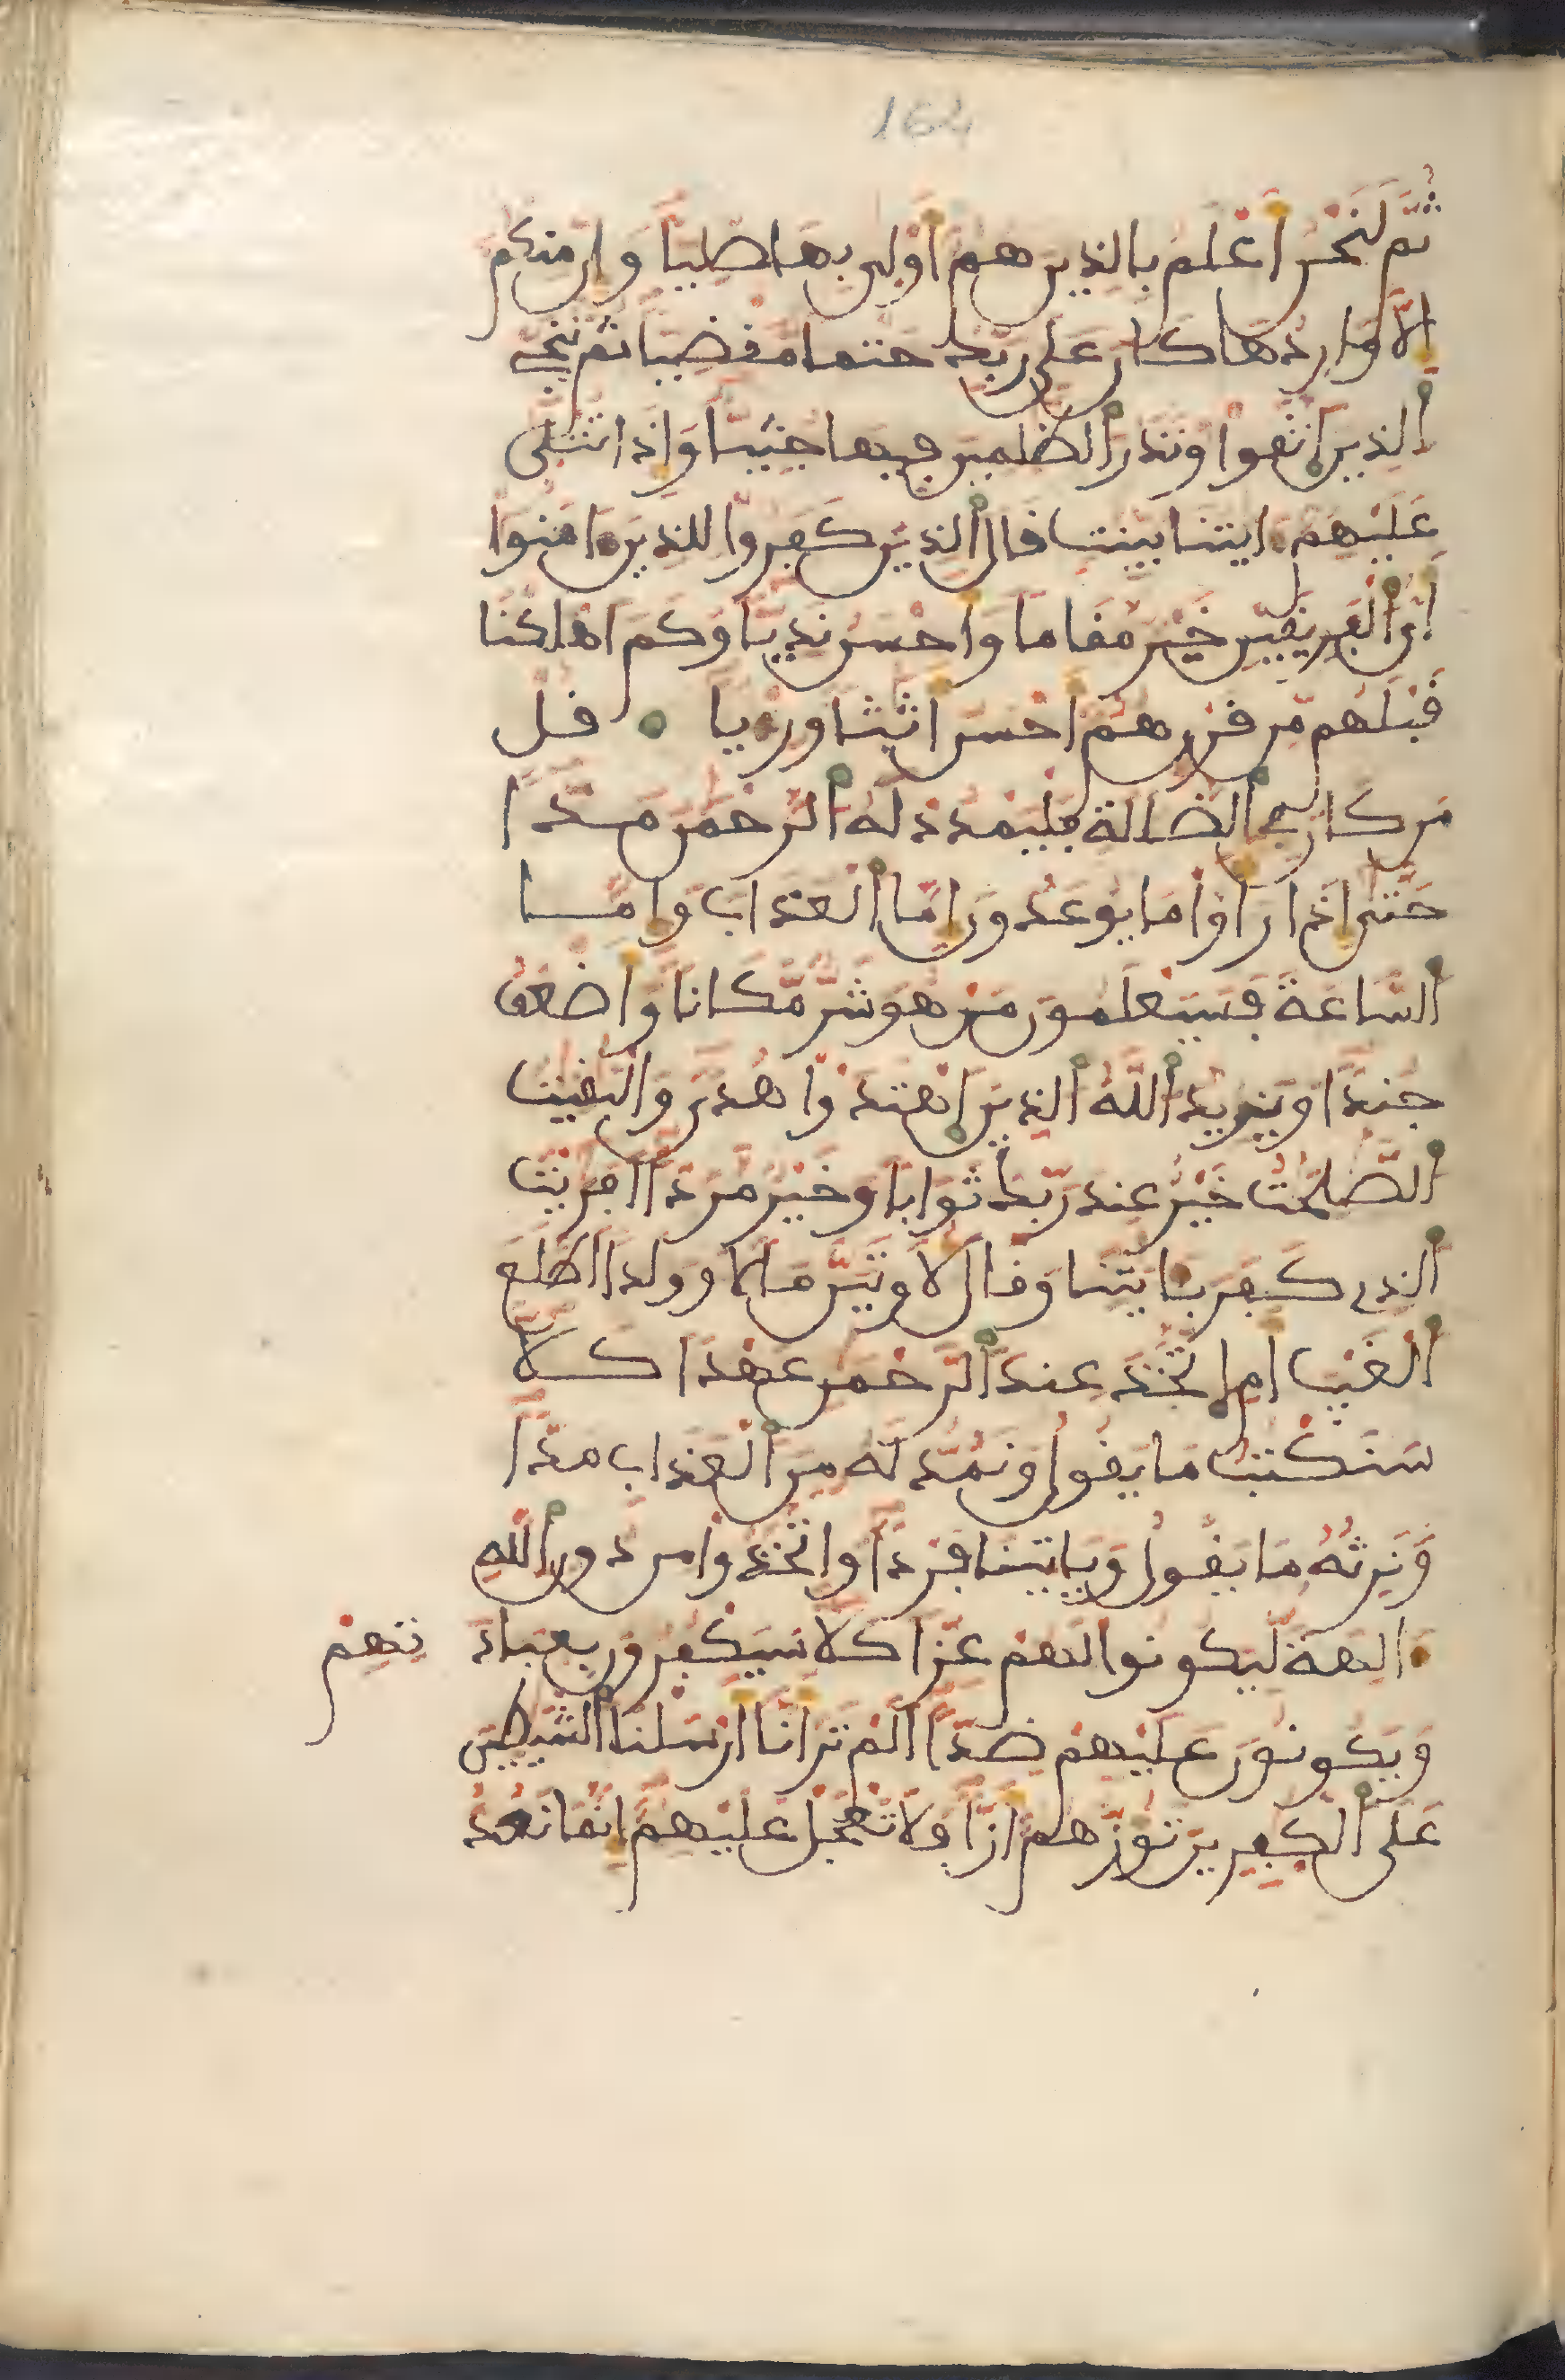 164
ثُمَّ لَنَحْنُ أَعْلَمُ بِالذِينَ هُمْ أَوْلَى بِهَا صُلِيّاً وَإِن مِّنكُمُ
إِلَّا وَارِدُهَا كَانَ عَلَى رَبِّكَ حَتْماً مَّقْضِيّاً ثُمَّ نُنَجِّے
الذِينَ اتَّقَوا وَّنَذَرُ الظَّلِمِينَ فِيهَا جُثِيّاً وَإِذَا تُتْلَى
عَلَيْهِمُ ءَايَتُنَا بَيِّنَتٍ قَالَ الذِينَ كَفَرُوا لِلذِينَ ءَامَنُوا
أَيُّ الْفَرِيقَيْنِ خَيْرٌ مَّقَاماً وَأَحْسَنُ نَدِيّاً وَكَمَ اَهْلَكْنَا
قَبْلَهُم مِّن قَرْنٍ هُمُ أَحْسَنُ أَثَثاً وَرِءْياً قُلْ
مَن كَانَ فِے الضَّلَلَةِ فَلْيَمْدُدْ لَهُ الرَّحْمَنُ مَدّاً
حَتَّى إِذَا رَأَوْا مَا يُوعَدُونَ إِمَّا الْعَذَابَ وَإِمَّا
السَّاعَةَ فَسَيَعْلَمُونَ مَنْ هُوَ شَرٌّ مَّكَاناً وَأَضْعَفُ
جُنداً وَيَزِيدُ اللَّهُ الذِينَ اهْتَدَوْا هُدىً وَالْبَقِيَتُ
الصَّلِحَتُ خَيْرٌ عِندَ رَبِّكَ ثَوَاباً وَخَيْرٌ مَّرَدّاً اَفَرَيْتَ
الذِے كَفَرَ بِـَٔايَتِنَا وَقَالَ لَأُوتَيَنَّ مَالاً وَوَلَداً اَطَّلَعَ
الْغَيْبَ أَمِ اتَّخَذَ عِندَ الرَّحْمَنِ عَهْداً كَلَّا
سَنَكْتُبُ مَا يَقُولُ وَنَمُدُّ لَهُ مِنَ الْعَذَابِ مَدّاً
وَنَرِثُهُ مَا يَقُولُ وَيَاتِينَا فَرْداً وَاتَّخَذُوا مِن دُونِ اللَّهِ
ءَالِهَةً لِّيَكُونُوا لَهُمْ عِزّاً كَلَّا سَيَكْفُرُونَ بِعِبَادَتِهِمْ
وَيَكُونُونَ عَلَيْهِمْ ضِدّاً اَلَمْ تَرَ أَنَّا أَرْسَلْنَا الشَّيَطِينَ
عَلَى الْكَفِرِينَ تَؤُزُّهُمُ أَزّاً فَلَا تَعْجَلْ عَلَيْهِمُ إِنَّمَا نَعُدُّ